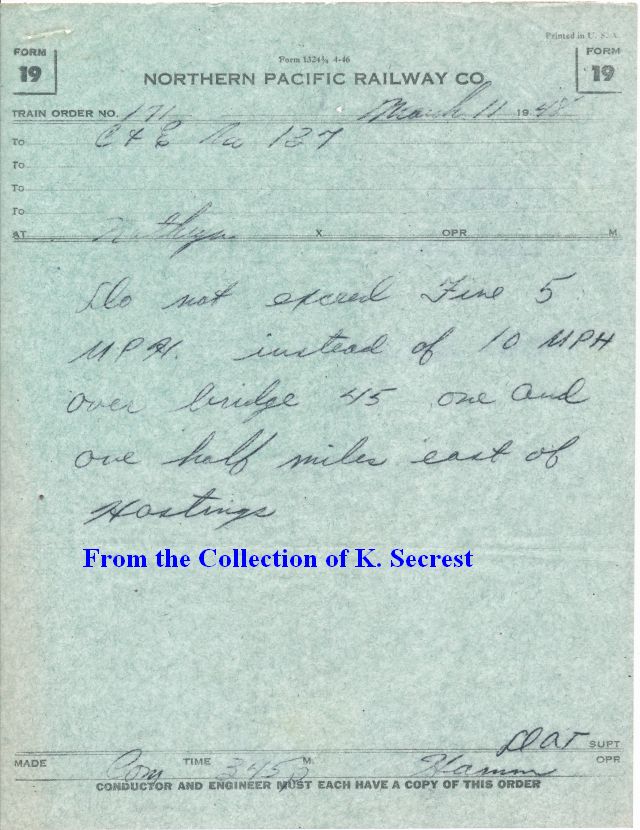 Printed in U. S. A.
FORM 19
Form 1324¾ 4-46
FORM 19
NORTHERN PACIFIC RAILWAY CO.
TRAIN ORDER NO. 171 March 11 1948
To C & E No 137
To
To
To
AT X OPR M
Do not exceed Five 5
MPH. instead of 10 MPH
over bridge 45 one and
one half miles east of
Hastings
From the Collection of K. Secrest
DAT SUPT
MADE Com TIME 345 P M. Hamm OPR
CONDUCTOR AND ENGINEER MUST EACH HAVE A COPY OF THIS ORDER